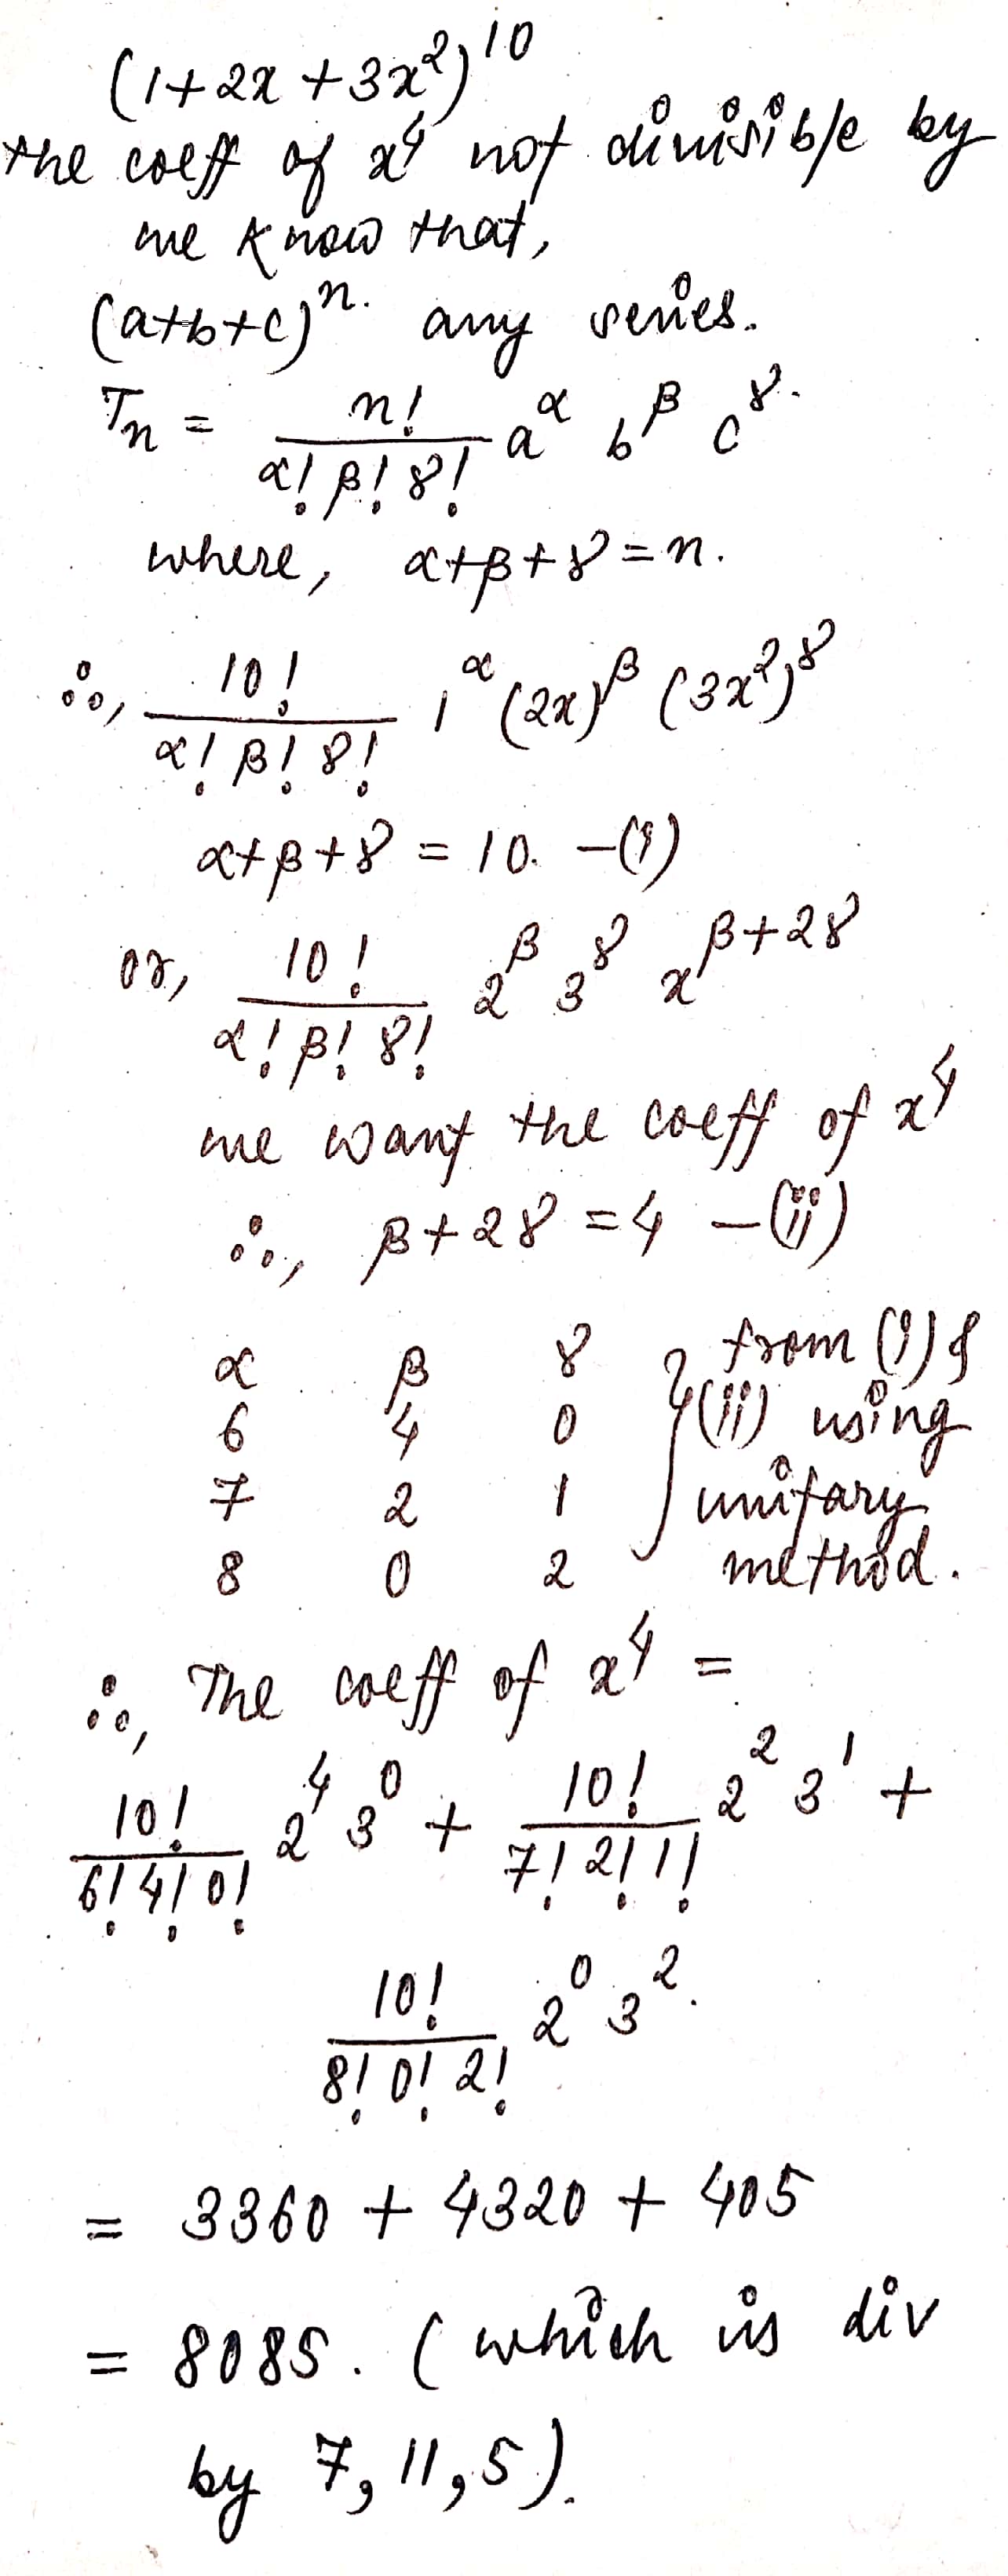 (1+2x+3x²)¹⁰
the coeff of x⁴ not divisible by
we know that,
(a+b+c)ⁿ. any series.
Tₙ = n!/(α! β! γ!) a^α b^β c^γ.
where, α+β+γ=n.
∴, 10!/(α! β! γ!) 1^α (2x)^β (3x²)^γ
α+β+γ = 10. –(i)
or, 10!/(α! β! γ!) 2^β 3^γ x^(β+2γ)
we want the coeff of x⁴
∴, β+2γ=4 –(ii)
α β γ } from (i) &
6 4 0 (ii) using
7 2 1 unitary
8 0 2 method.
∴, The coeff of x⁴ =
10!/(6! 4! 0!) 2⁴ 3⁰ + 10!/(7! 2! 1!) 2² 3¹ +
10!/(8! 0! 2!) 2⁰ 3².
= 3360 + 4320 + 405
= 8085. (which is div
by 7, 11, 5).